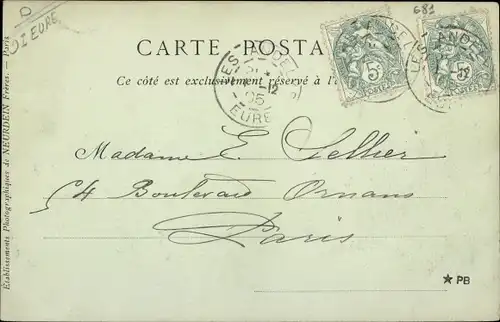 D
D I EURE
681
CARTE POSTA
Ce côté est exclusivement réservé à l'
LES-ANDE
12
05
EURE
5
POSTES
5
ANDE
LES
Madame E. Tellier
64 Boulevard Ornans
Paris
Établissements Photographiques de NEURDEIN Frères. — Paris
★ PB